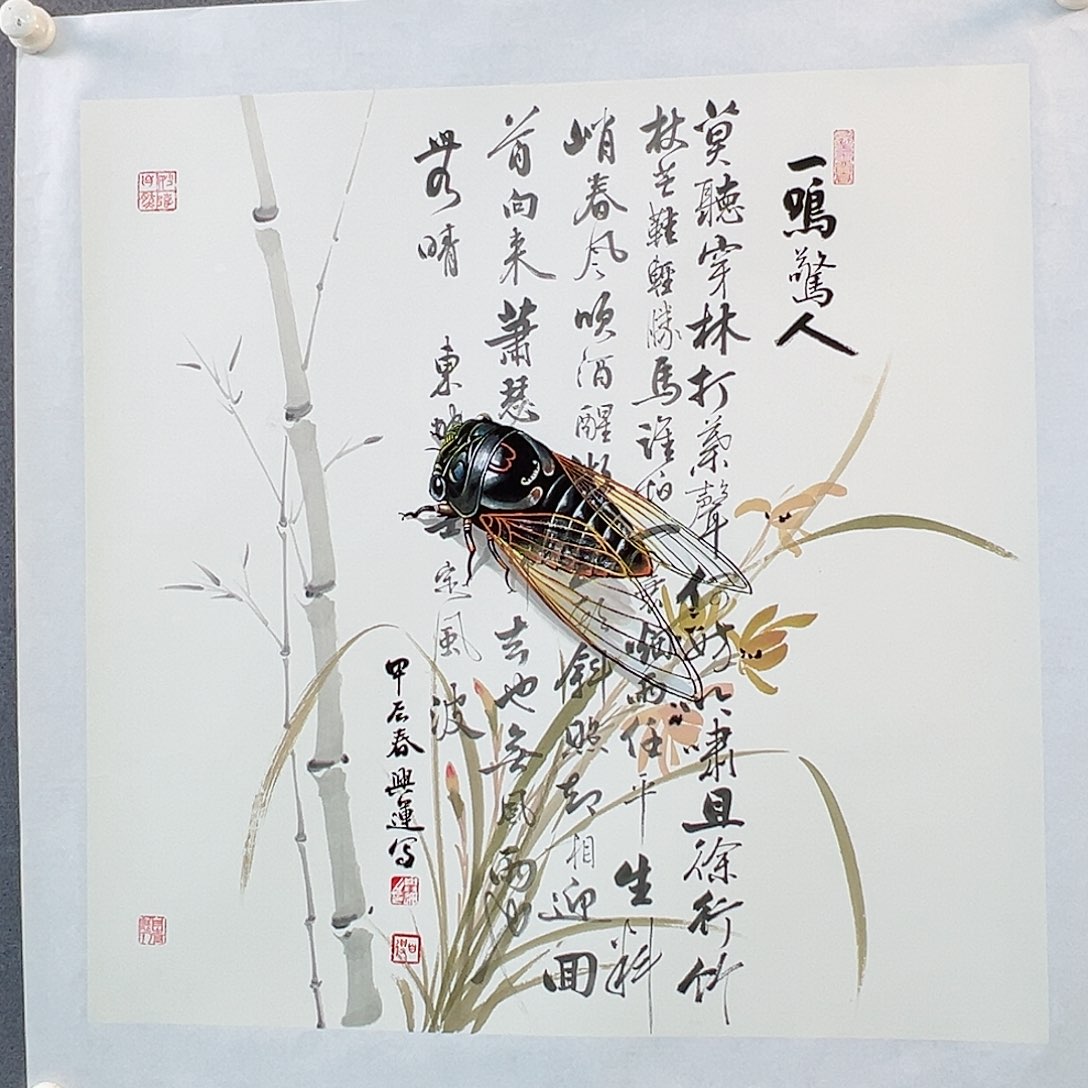 一鳴驚人
莫聽穿林打葉聲何妨吟嘯且徐行竹
杖芒鞋輕勝馬誰怕蓑烟雨任平生料
峭春风吹酒醒微斜照却相迎回
首向来蕭瑟去也無風雨也
無晴
東坡士定風波
甲辰春興運写